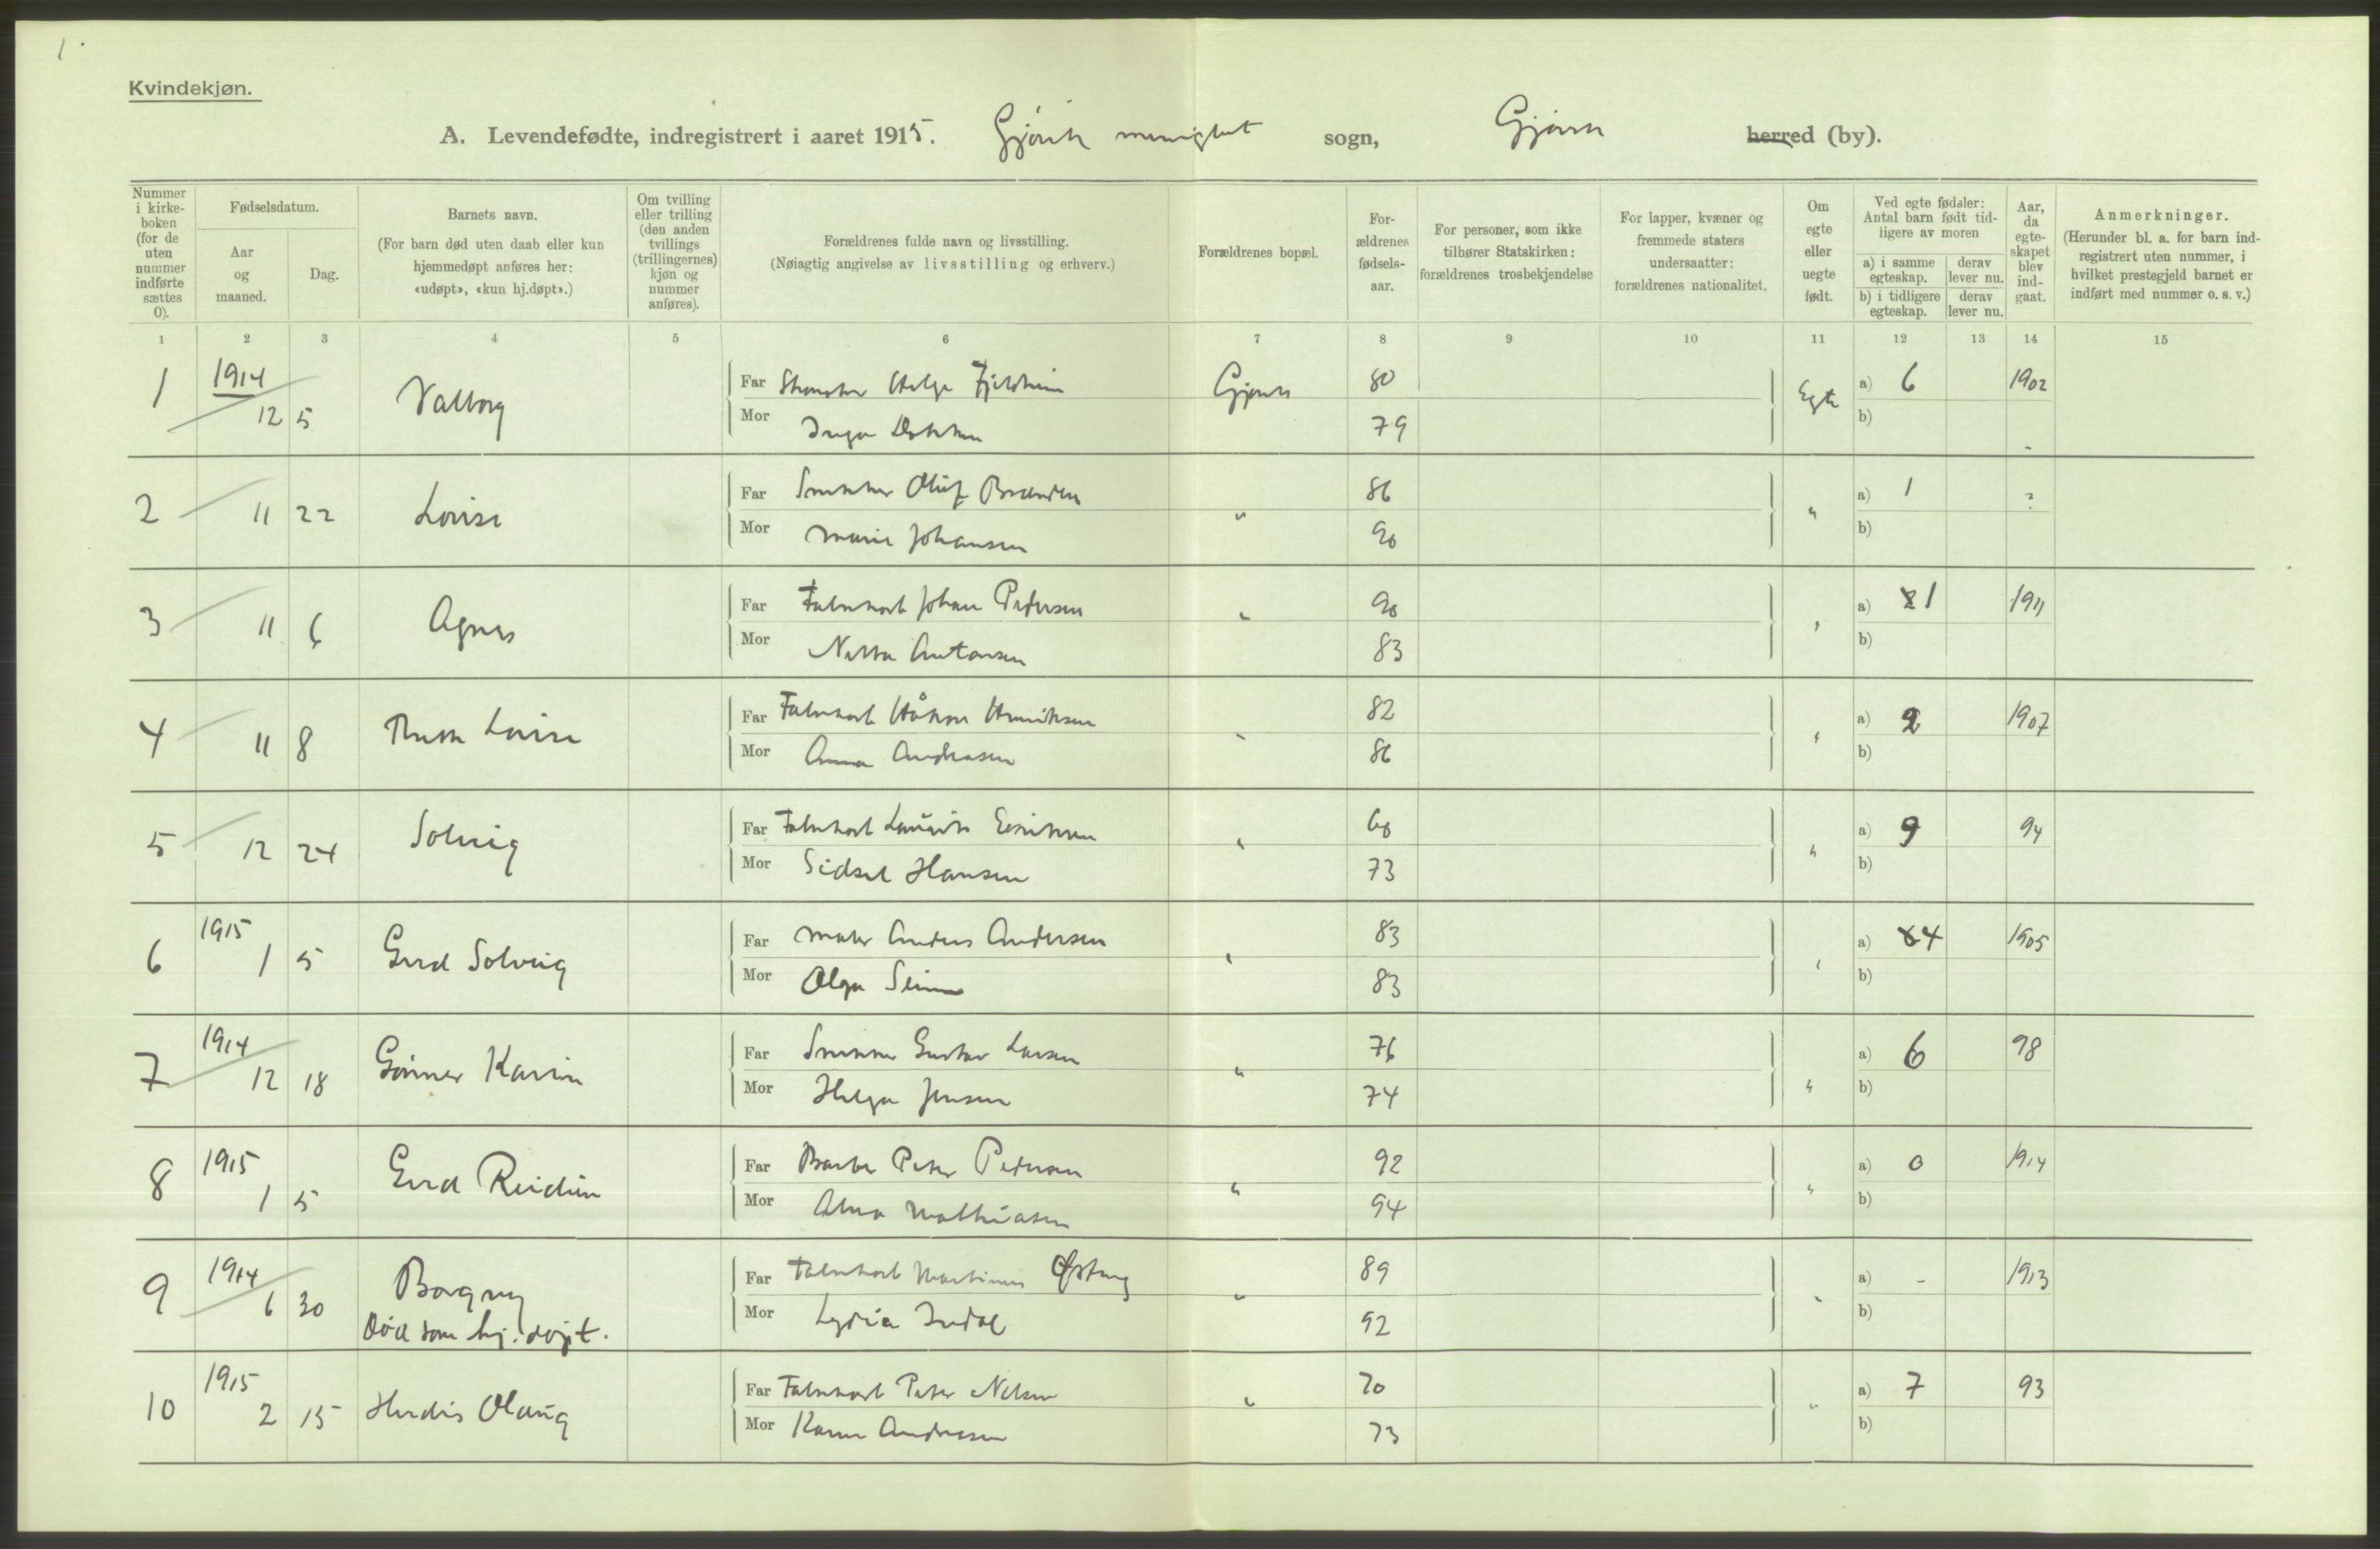 1.
Kvindekjøn.
A. Levendefødte, indregistrert i aaret 1915. Gjøvik menighet sogn, Gjøvik herred (by).
Nummer i kirke-boken (for de uten nummer indførte sættes 0).
Fødselsdatum.
Aar og maaned.
Dag.
Barnets navn.
(For barn død uten daab eller kun hjemmedøpt anføres her: «udøpt», «kun hj.døpt».)
Om tvilling eller trilling (den anden tvillings (trillingernes) kjøn og nummer anføres).
Forældrenes fulde navn og livsstilling.
(Nøiagtig angivelse av livsstilling og erhverv.)
Forældrenes bopæl.
For-ældrenes fødsels-aar.
For personer, som ikke tilhører Statskirken: forældrenes trosbekjendelse
For lapper, kvæner og fremmede staters undersaatter: forældrenes nationalitet.
Om egte eller uegte født.
Ved egte fødsler: Antal barn født tid-ligere av moren
a) i samme egteskap.
derav lever nu.
b) i tidligere egteskap.
derav lever nu.
Aar, da egte-skapet blev ind-gaat.
Anmerkninger.
(Herunder bl. a. for barn ind-registrert uten nummer, i hvilket prestegjeld barnet er indført med nummer o. s. v.)
1 2 3 4 5 6 7 8 9 10 11 12 13 14 15
1 1914 12 5 Valborg Far Helge Fjeldheim Gjøvik 80 Egte a) 6 1902
Mor Inga 79 b)
2 11 22 Louise Far Snekker Oluf Brænden " 86 " a) 1 ?
Mor Marie Johansen 90 b)
3 11 6 Agnes Far Fabrikarb Johan Pedersen " 90 " a) 1 1911
Mor Antonsen 83 b)
4 11 8 Ruth Louise Far Fabrikarb Håkon Henriksen " 82 " a) 2 1907
Mor Anna Andreasen 86 b)
5 12 24 Solveig Far Fabrikarb Lauritz Eriksen " 68 " a) 9 94
Mor Sidsel Hansen 73 b)
6 1915 1 5 Gerd Solveig Far Maler Anders Andersen " 83 " a) 4 1905
Mor Olga 83 b)
7 1914 12 18 Karin Far Snekker Gustav Larsen " 76 " a) 6 98
Mor Helga Jensen 74 b)
8 1915 1 5 Gerd Reidun Far Barber Peter Pedersen " 92 " a) 0 1914
Mor Alma Mathiasen 94 b)
9 1914 6 30 Borgny Far Fabrikarb Martinius " 89 " a) - 1913
Død som hj.døpt. Mor Lydia Indal 92 b)
10 1915 2 15 Herdis Olaug Far Fabrikarb Peter Nilsen " 70 " a) 7 93
Mor Karen Andresen 73 b)